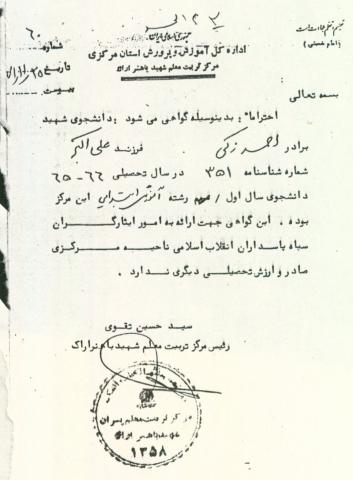 ۱۲۳
جمهوری اسلامی ایران
اداره کل آموزش و پرورش استان مرکزی
مرکز تربیت معلم شهید باهنر اراک
(امام خمینی)
شماره ۶۰
تاریخ
پیوست
بسمه تعالی
احتراما" : بدینوسیله گواهی می شود : دانشجوی شهید
برادر احمد زکی فرزند علی اکبر
شماره شناسنامه ۳۵۱ در سال تحصیلی ۶۶-۶۵
دانشجوی سال اول / رشته آموزش ابتدایی این مرکز
بوده ، این گواهی جهت ارائه به امور ایثارگران
سپاه پاسداران انقلاب اسلامی ناحیه مرکزی
صادر و ارزش تحصیلی دیگری ندارد .
سید حسین تقوی
رئیس مرکز تربیت معلم شهید باهنر اراک
مرکز تربیت معلم پسران
شهید باهنر اراک
۱۳۵۸